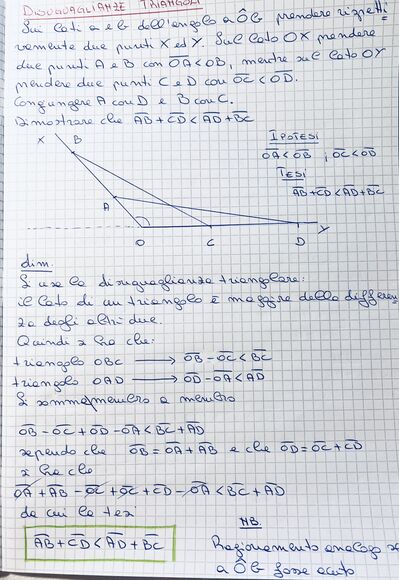 DISUGUAGLIANZE TRIANGOLI
Sui lati a e b dell'angolo aÔb prendere rispetti
vamente due punti X ed Y. Sul lato OX prendere
due punti A e B con OA < OB, mentre sul lato OY
prendere due punti C e D con OC < OD.
Congiungere A con D e B con C.
Dimostrare che AB + CD < AD + BC
IPOTESI
OA < OB ; OC < OD
TESI
AB + CD < AD + BC
X
B
A
O
C
D
Y
dim.
Si usa la disuguaglianza triangolare:
il lato di un triangolo è maggire della differen
za degli altri due.
Quindi si ha che:
triangolo OBC → OB - OC < BC
triangolo OAD → OD - OA < AD
Si somma membro a membro
OB - OC + OD - OA < BC + AD
sapendo che OB = OA + AB e che OD = OC + CD
si ha che
OA + AB - OC + OC + CD - OA < BC + AD
da cui la tesi
AB + CD < AD + BC
NB.
Ragionamento analogo se
aÔb fosse acuto